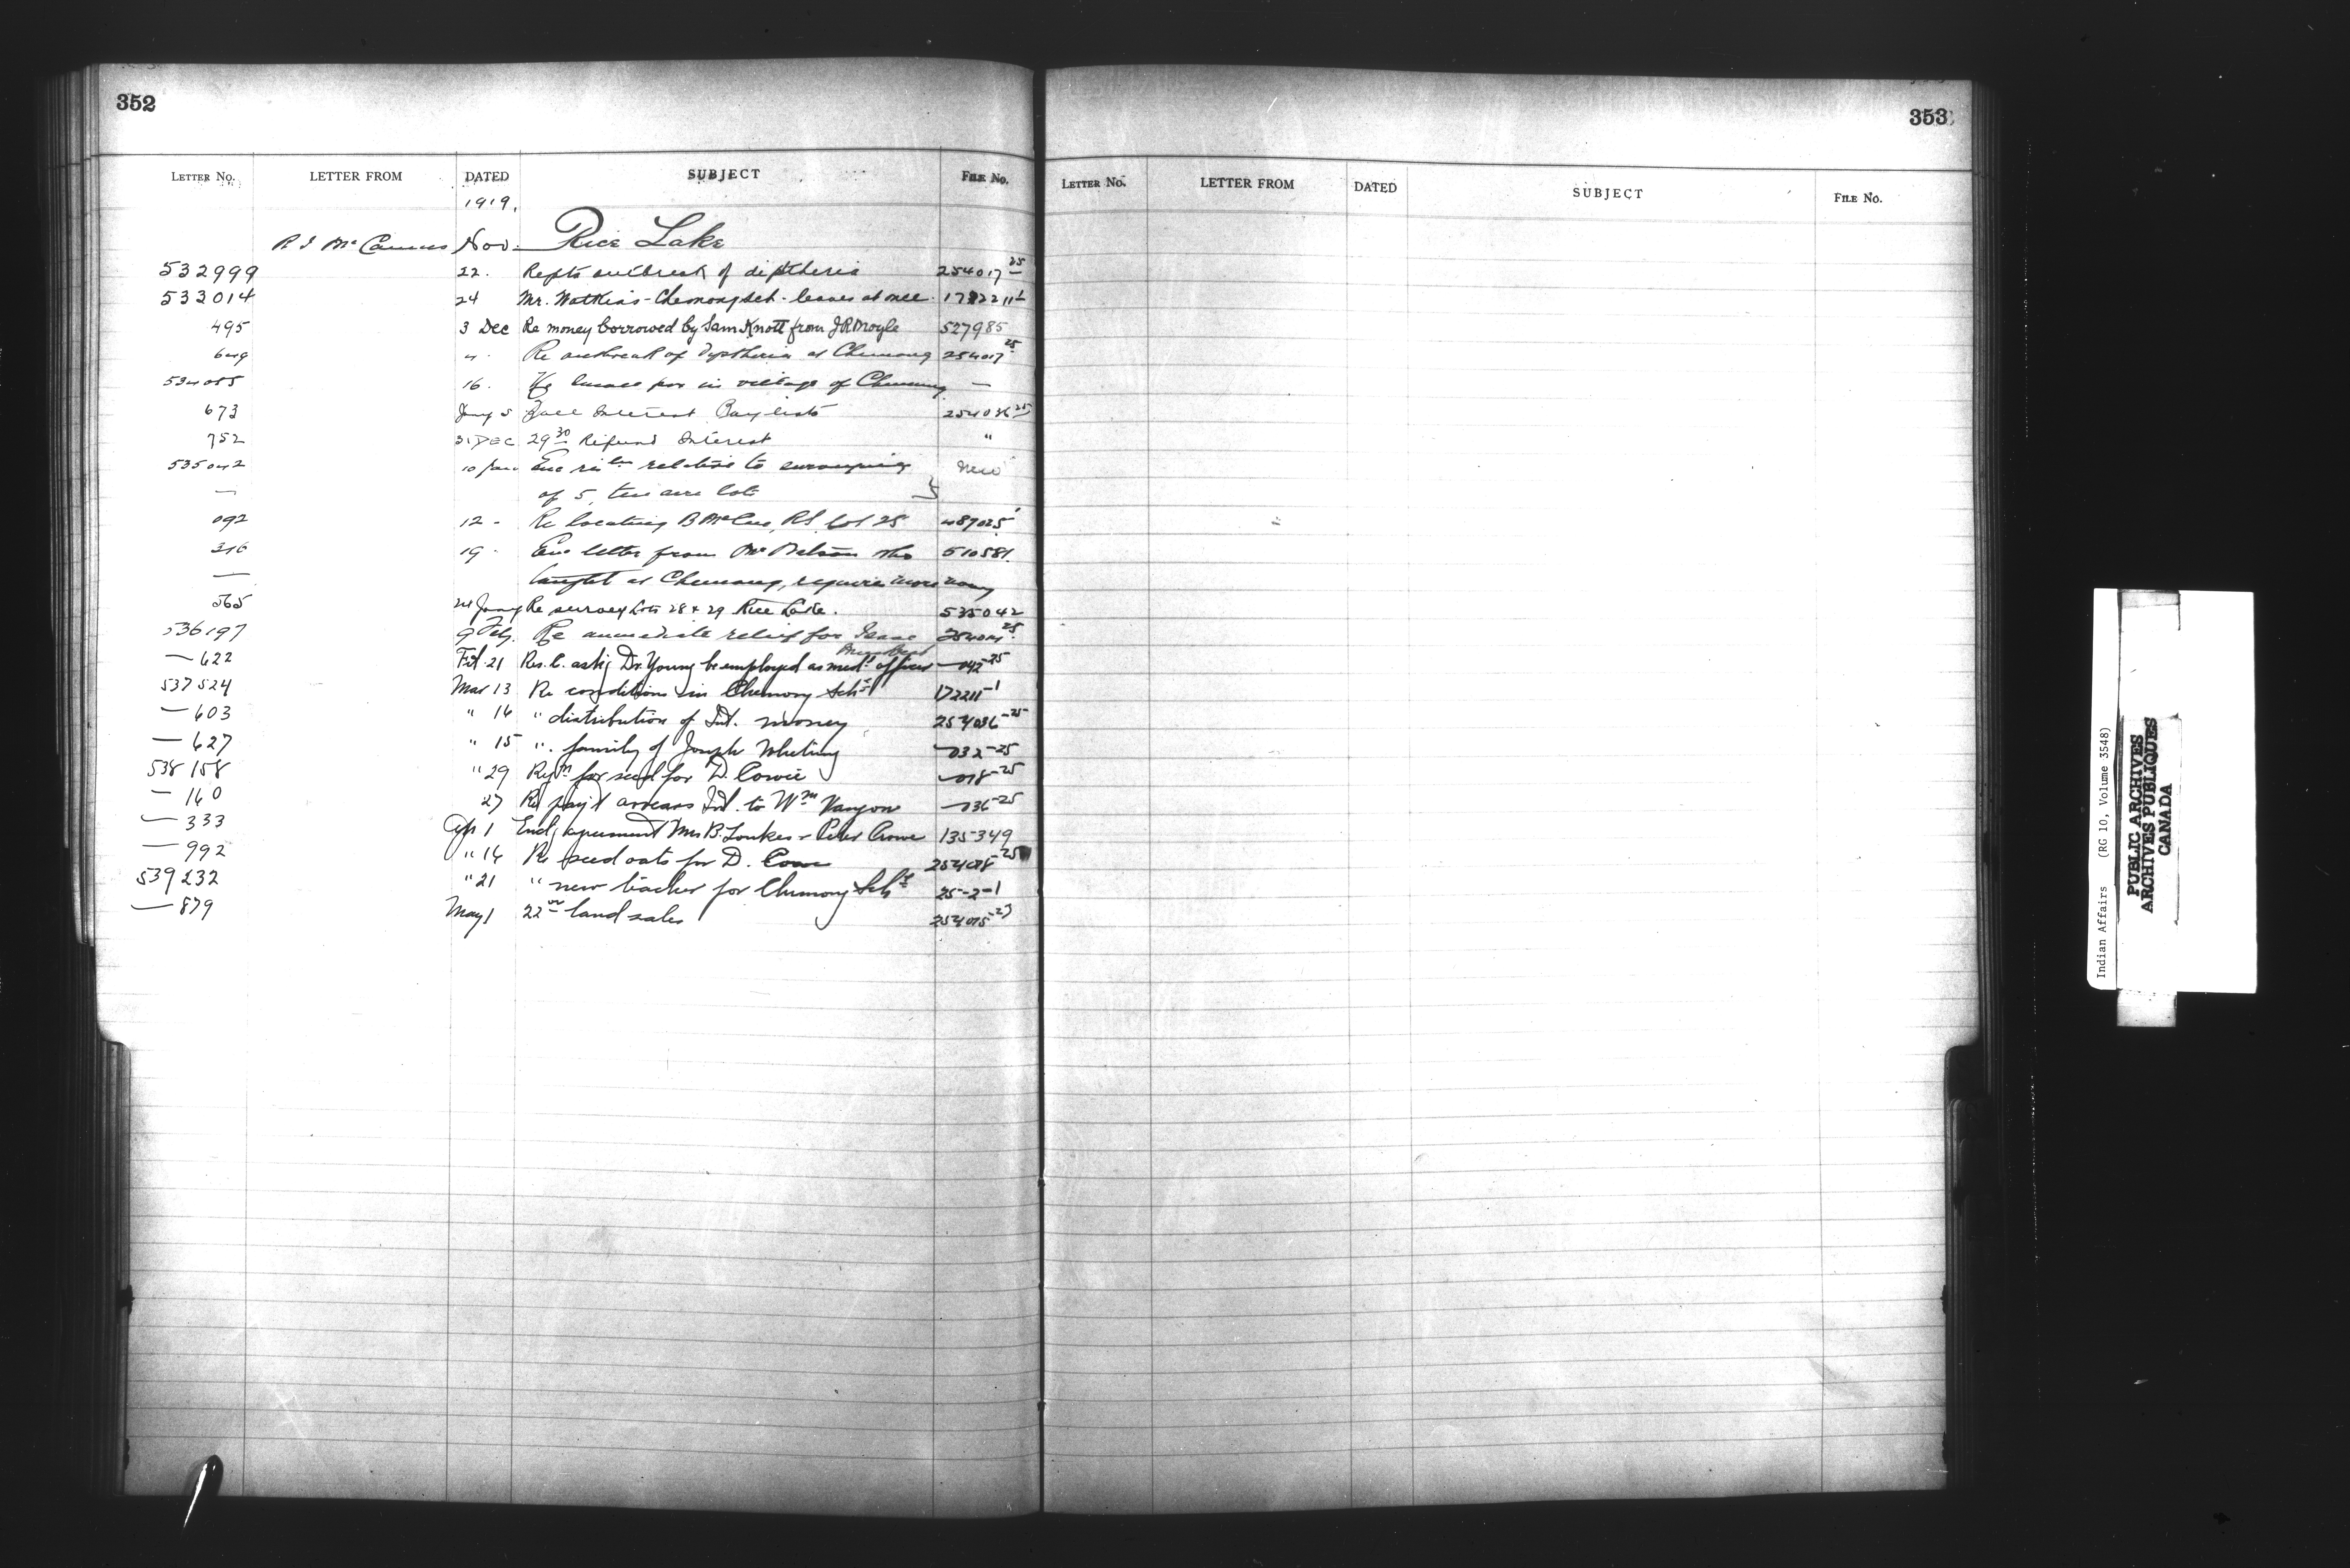 352
LETTER No. LETTER FROM DATED SUBJECT FILE No.
1919.
R J McCamus Nov. Rice Lake
532999 22. Repts outbreak of diptheria 254017 25
533014 24 Mr. Watkins - Chemong sch. leaves at once. 172211 1
495 3 Dec Re money borrowed by Sam Knott from J R Moyle 527985
649 4. Re outbreak of diptheria at Chemong 254017 25
534055 16. Re small pox in village of Chemong —
673 Jany 5 Interest Pay lists 254036 25
752 31 DEC 29 30 Refund Interest "
535042 10 Jan Enc relative to surveying New
— of 5, ten acre lots
092 12 - Re locating B McCue, RL Lot 28 489025
316 19 - Enc letter from Mr Nelson who 510581.
— taught at Chemong, requires more money
565 24 Jany Re survey Lots 28 & 29 Rice Lake. 535042
536197 9 Feby. Re immediate relief for Isaac 25
— 622 Feb. 21 Res. C. ask'g Dr. Young be employed as med. officer — 042-25
537524 Mar 13 Re conditions in Chemong Schl 172211-1
— 603 " 16 " distribution of Int. money 254036-25
— 627 " 15 " family of Joseph Whiting — 032-25
538158 " 29 Reqn for seed for D. Cowie — 018-25
— 160 27 Re pay't arrears Int. to Wm — 036-25
— 333 Apr 1 Encl'g agreement Mrs B. Loukes & Peter Crowe 135349
— 992 " 16 Re seed oats for D. 254018-25
539232 " 21 " new teacher for Chemong Schl 25-2-1
— 879 May 1 22 land sales 254015-25
353
LETTER No. LETTER FROM DATED SUBJECT FILE No.
Indian Affairs (RG 10, Volume 3548)
PUBLIC ARCHIVES
ARCHIVES PUBLIQUES
CANADA